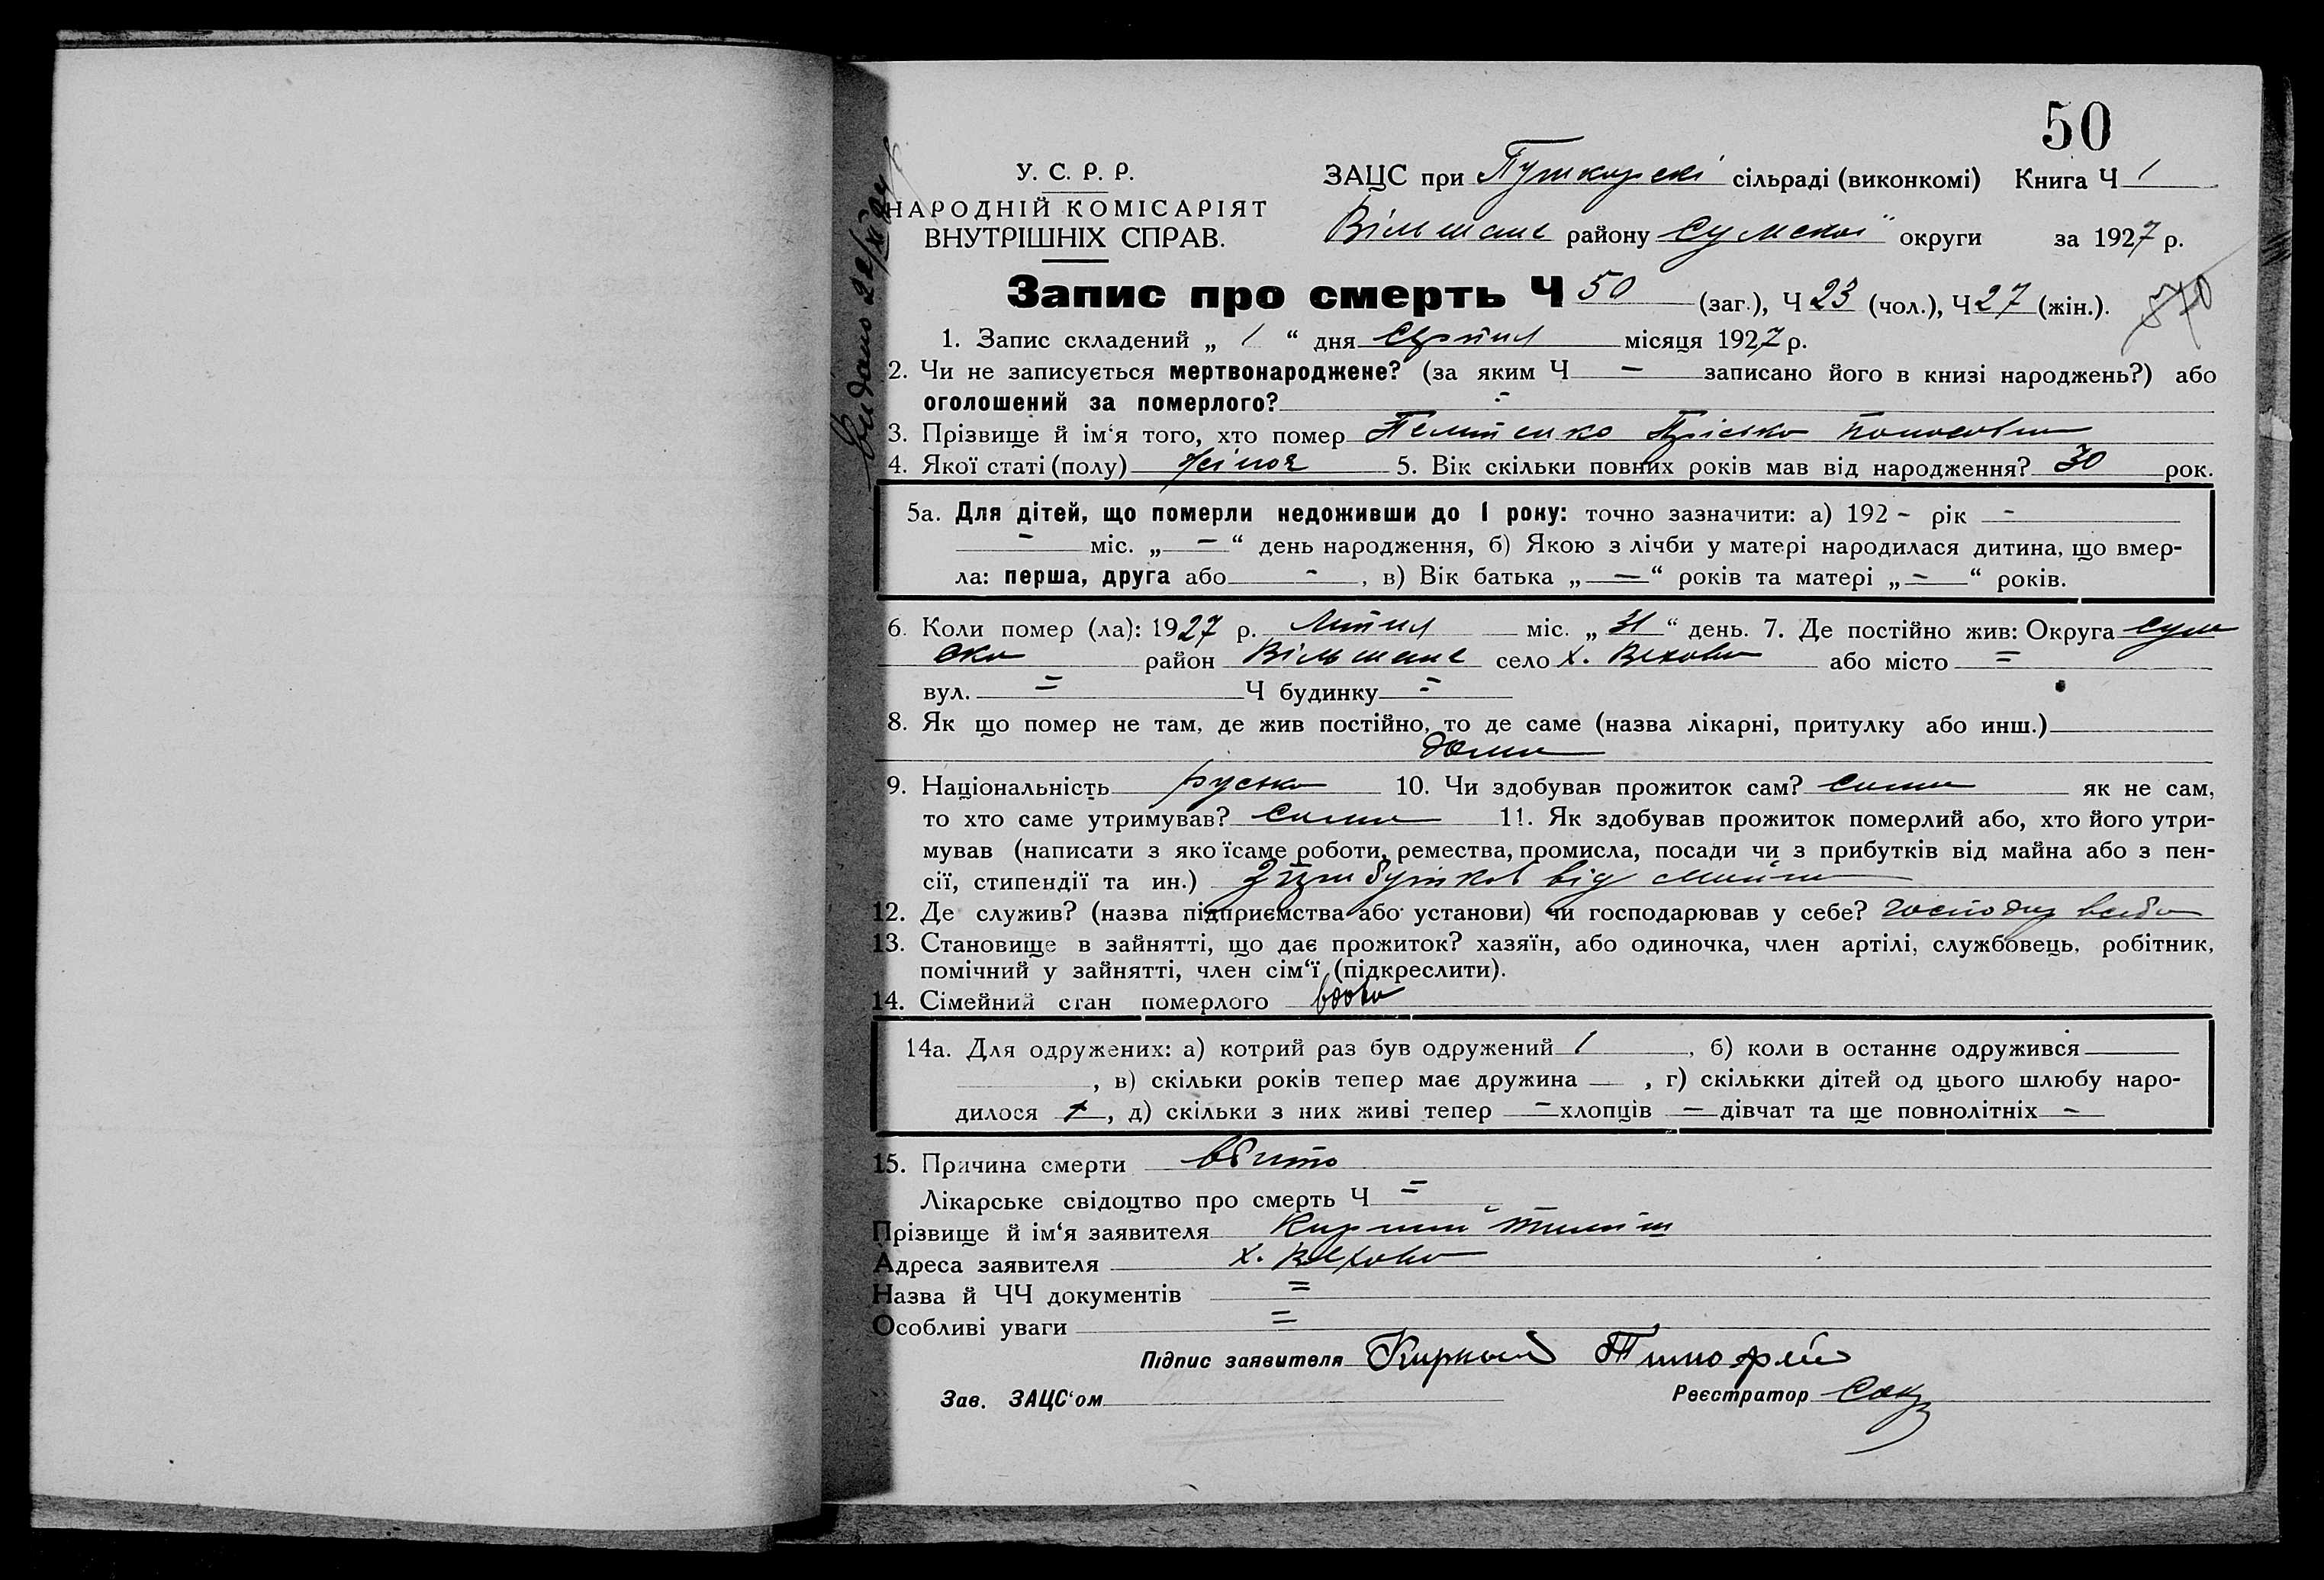 50
У. С. Р. Р.
НАРОДНІЙ КОМІСАРІЯТ
ВНУТРІШНІХ СПРАВ.
ЗАЦС при Пушкарскі сільраді (виконкомі) Книга Ч 1
Вільшане району Сумської округи за 1927 р.
Запис про смерть Ч 50 (заг.), Ч 23 (чол.), Ч 27 (жін.).
570
1. Запис складений „ 1 “ дня Серпня місяця 1927 р.
2. Чи не записується мертвонароджене? (за яким Ч — записано його в книзі народжень?) або
оголошений за померлого? -
3. Прізвище й ім‘я того, хто помер
4. Якої статі (полу) жіноч 5. Вік скільки повних років мав від народження? 30 рок.
5а. Для дітей, що померли недоживши до 1 року: точно зазначити: а) 192 - рік -
- міс. „ — “ день народження, б) Якою з лічби у матері народилася дитина, що вмер-
ла: перша, друга або - , в) Вік батька „ — “ років та матері „ - “ років.
6. Коли помер (ла): 1927 р. Липня міс. „ 31 “ день. 7. Де постійно жив: Округа Сум
ска район Вільшане село х. або місто =
вул. = Ч будинку =
8. Як що помер не там, де жив постійно, то де саме (назва лікарні, притулку або инш.)
дома
9. Національність руська 10. Чи здобував прожиток сам? сама як не сам,
то хто саме утримував? сама 11. Як здобував прожиток померлий або, хто його утри-
мував (написати з яко їсаме роботи, ремества, промисла, посади чи з прибутків від майна або з пен-
сії, стипендії та ин.) З прибутков від майна
12. Де служив? (назва підприємства або установи) чи господарював у себе? господар всебе
13. Становище в зайнятті, що дає прожиток? хазяїн, або одиночка, член артілі, службовець, робітник,
помічний у зайнятті, член сім‘ї (підкреслити).
14. Сімейний стан померлого вдова
14а. Для одружених: а) котрий раз був одружений 1 , б) коли в останнє одружився
, в) скільки років тепер має дружина — , г) скількки дітей од цього шлюбу наро-
дилося , д) скільки з них живі тепер — хлопців — дівчат та ще повнолітніх -
15. Причина смерти вбито
Лікарське свідоцтво про смерть Ч =
Прізвище й ім‘я заявителя
Адреса заявителя х.
Назва й ЧЧ документів =
Особливі уваги =
Підпис заявителя Тимофей
Зав. ЗАЦС‘ом
Реєстратор